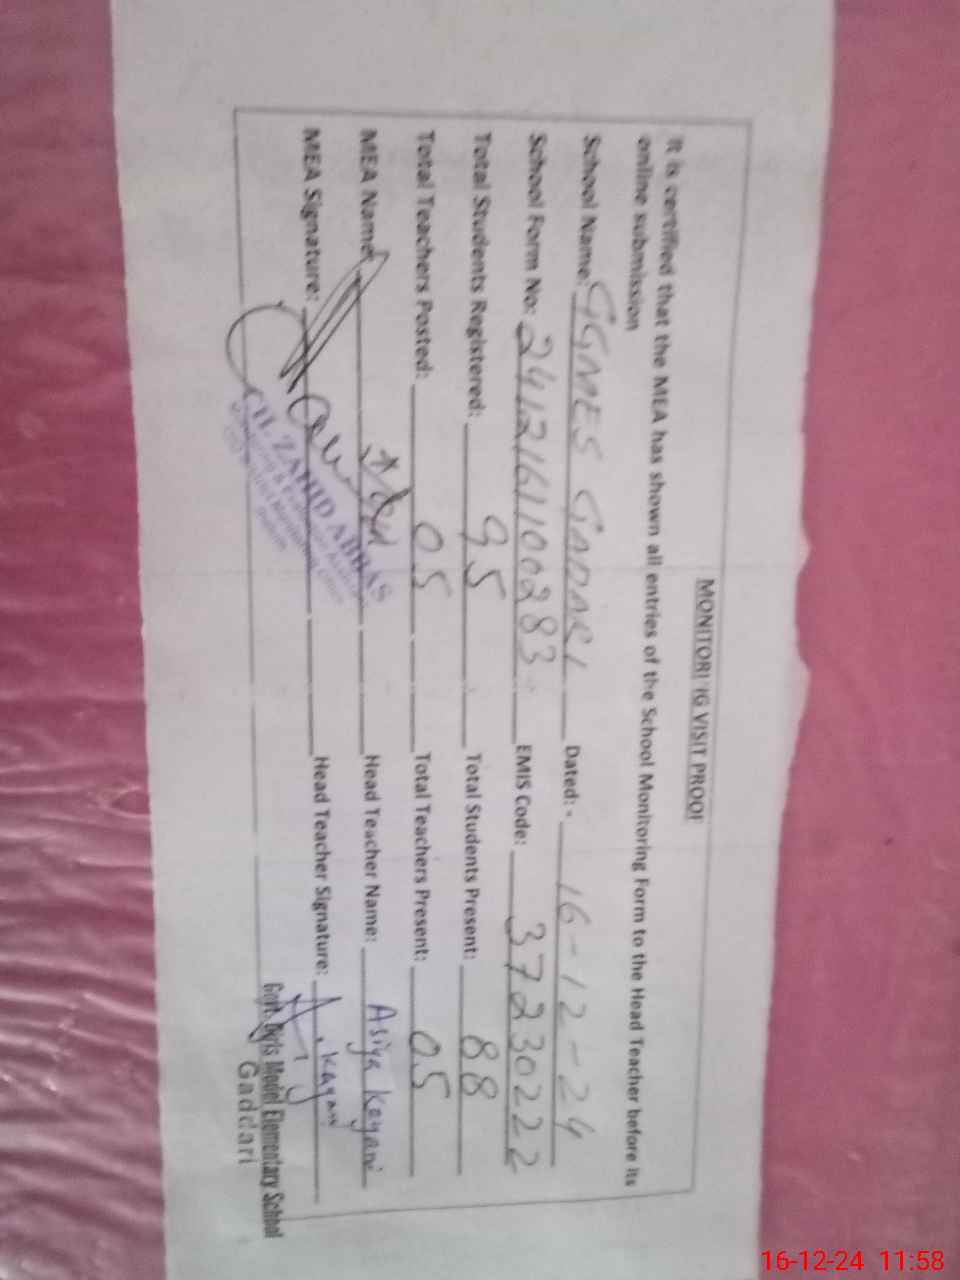 MONITORING VISIT PROOF
It is certified that the MEA has shown all entries of the School Monitoring Form to the Head Teacher before its
online submission
School Name: GGMES GADARI Dated: - 16-12-24
School Form No: 24121611002 83 EMIS Code: 37230222
Total Students Registered: 95 Total Students Present: 88
Total Teachers Posted: 05 Total Teachers Present: 05
MEA Name: Head Teacher Name: Asiya Kayani
MEA Signature: Head Teacher Signature: A. Kayani
CH. ZAHID ABBAS
Govt. Girls Model Elementary School
Gaddari
16-12-24 11:58